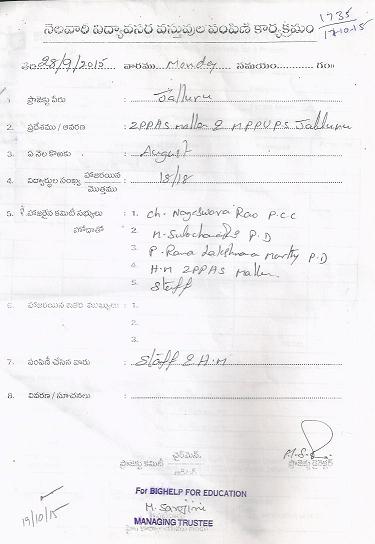 1735
17-10-15
నెలవారి విద్యావసర వస్తువుల పంపిణి కార్యక్రమం
తేది 28/9/2015 వారము Monday సమయం గం॥
1. ప్రాజెక్టు పేరు : Jalluru
2. ప్రదేశము / ఆవరణ : ZPPHS Mallam & MPPUPS Jalluru
3. ఏ నెల కొఱకు : August
4. విద్యార్థుల సంఖ్య హాజరయిన మొత్తము : 18/18
5. హాజరైన కమిటీ సభ్యులు : 1. Ch. Nageswara Rao P.C.C
హోదాతో 2. P.D
3. P. Rama Lakshmana Murthy P.D
4. H.M ZPPHS
5. Staff
6. హాజరయిన ఇతర ముఖ్యులు : 1.
2.
3.
7. పంపిణీ చేసిన వారు : Staff & H.M
8. వివరణ / సూచనలు :
ప్రాజెక్టు కమిటీ ఛైర్మెన్
ప్రాజెక్టు డైరెక్టర్
For BIGHELP FOR EDUCATION
M. Sarojini
MANAGING TRUSTEE
19/10/15